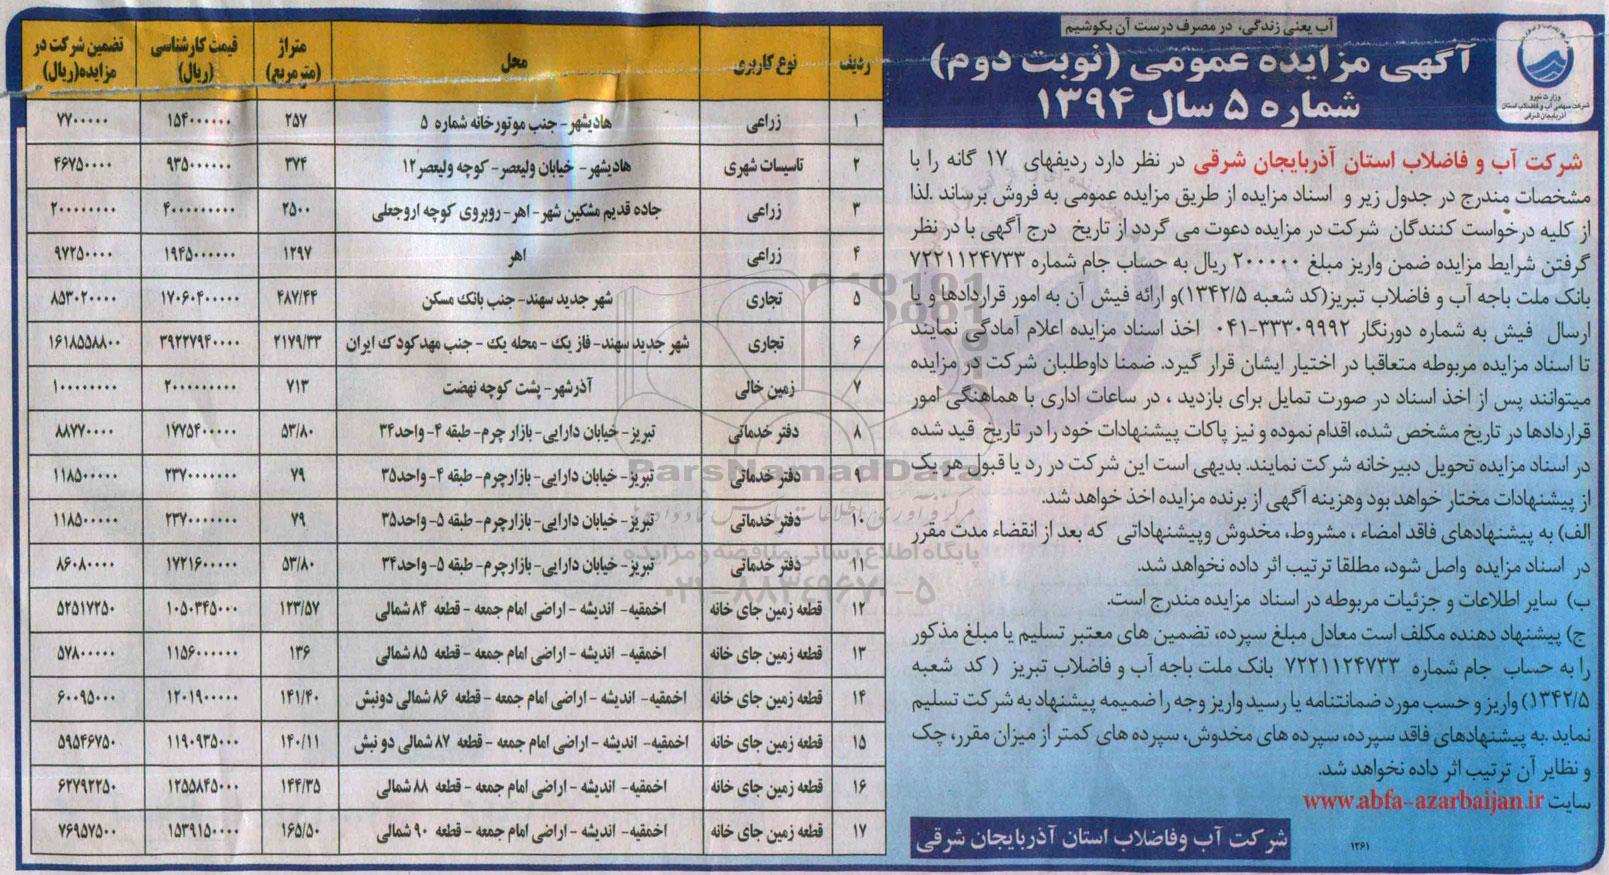 آب یعنی زندگی، در مصرف درست آن بکوشیم
آگهی مزایده عمومی (نوبت دوم)
شماره ۵ سال ۱۳۹۴
وزارت نیرو
شرکت سهامی آب و فاضلاب استان
آذربایجان شرقی
شرکت آب و فاضلاب استان آذربایجان شرقی در نظر دارد ردیفهای ۱۷ گانه را با
مشخصات مندرج در جدول زیر و اسناد مزایده از طریق مزایده عمومی به فروش برساند .لذا
از کلیه درخواست کنندگان شرکت در مزایده دعوت می گردد از تاریخ درج آگهی با در نظر
گرفتن شرایط مزایده ضمن واریز مبلغ ۲۰۰۰۰۰ ریال به حساب جام شماره ۷۲۲۱۱۲۴۷۳۳
بانک ملت باجه آب و فاضلاب تبریز(کد شعبه ۱۳۴۲/۵)و ارائه فیش آن به امور قراردادها و یا
ارسال فیش به شماره دورنگار ۳۳۳۰۹۹۹۲-۰۴۱ اخذ اسناد مزایده اعلام آمادگی نمایند
تا اسناد مزایده مربوطه متعاقبا در اختیار ایشان قرار گیرد. ضمنا داوطلبان شرکت در مزایده
میتوانند پس از اخذ اسناد در صورت تمایل برای بازدید ، در ساعات اداری با هماهنگی امور
قراردادها در تاریخ مشخص شده، اقدام نموده و نیز پاکات پیشنهادات خود را در تاریخ قید شده
در اسناد مزایده تحویل دبیرخانه شرکت نمایند. بدیهی است این شرکت در رد یا قبول هر یک
از پیشنهادات مختار خواهد بود وهزینه آگهی از برنده مزایده اخذ خواهد شد.
الف) به پیشنهادهای فاقد امضاء ، مشروط، مخدوش وپیشنهاداتی که بعد از انقضاء مدت مقرر
در اسناد مزایده واصل شود، مطلقا ترتیب اثر داده نخواهد شد.
ب) سایر اطلاعات و جزئیات مربوطه در اسناد مزایده مندرج است.
ج) پیشنهاد دهنده مکلف است معادل مبلغ سپرده، تضمین های معتبر تسلیم یا مبلغ مذکور
را به حساب جام شماره ۷۲۲۱۱۲۴۷۳۳ بانک ملت باجه آب و فاضلاب تبریز ( کد شعبه
۱۳۴۲/۵) واریز و حسب مورد ضمانتنامه یا رسید واریز وجه را ضمیمه پیشنهاد به شرکت تسلیم
نماید .به پیشنهادهای فاقد سپرده، سپرده های مخدوش، سپرده های کمتر از میزان مقرر، چک
و نظایر آن ترتیب اثر داده نخواهد شد.
سایت www.abfa-azarbaijan.ir
شرکت آب وفاضلاب استان آذربایجان شرقی
۱۲۶۱
ردیف نوع کاربری محل متراژ (مترمربع) قیمت کارشناسی (ریال) تضمین شرکت در مزایده(ریال)
۱ زراعی هادیشهر- جنب موتورخانه شماره ۵ ۲۵۷ ۱۵۴۰۰۰۰۰۰ ۷۷۰۰۰۰۰
۲ تاسیسات شهری هادیشهر- خیابان ولیعصر- کوچه ولیعصر۱۲ ۳۷۴ ۹۳۵۰۰۰۰۰۰ ۴۶۷۵۰۰۰۰
۳ زراعی جاده قدیم مشکین شهر- اهر- روبروی کوچه اروجعلی ۲۵۰۰ ۴۰۰۰۰۰۰۰۰۰ ۲۰۰۰۰۰۰۰۰
۴ زراعی اهر ۱۲۹۷ ۱۹۴۵۰۰۰۰۰۰ ۹۷۲۵۰۰۰۰
۵ تجاری شهر جدید سهند- جنب بانک مسکن ۴۸۷/۴۴ ۱۷۰۶۰۴۰۰۰۰۰ ۸۵۳۰۲۰۰۰۰
۶ تجاری شهر جدید سهند- فاز یک - محله یک - جنب مهدکودک ایران ۲۱۷۹/۳۳ ۳۹۲۲۷۹۴۰۰۰۰ ۱۶۱۸۵۵۸۸۰۰
۷ زمین خالی آذرشهر- پشت کوچه نهضت ۷۱۳ ۲۰۰۰۰۰۰۰۰۰ ۱۰۰۰۰۰۰۰۰
۸ دفتر خدماتی تبریز- خیابان دارایی- بازار چرم- طبقه ۴- واحد۳۴ ۵۳/۸۰ ۱۷۷۵۴۰۰۰۰۰ ۸۸۷۷۰۰۰۰
۹ دفتر خدماتی تبریز- خیابان دارایی- بازارچرم- طبقه ۴- واحد۳۵ ۷۹ ۲۳۷۰۰۰۰۰۰۰ ۱۱۸۵۰۰۰۰۰
۱۰ دفتر خدماتی تبریز- خیابان دارایی- بازارچرم- طبقه ۵- واحد۳۵ ۷۹ ۲۳۷۰۰۰۰۰۰۰ ۱۱۸۵۰۰۰۰۰
۱۱ دفتر خدماتی تبریز- خیابان دارایی- بازارچرم- طبقه ۵- واحد۳۴ ۵۳/۸۰ ۱۷۲۱۶۰۰۰۰۰ ۸۶۰۸۰۰۰۰
۱۲ قطعه زمین جای خانه اخمقیه- اندیشه - اراضی امام جمعه - قطعه ۸۴ شمالی ۱۲۳/۵۷ ۱۰۵۰۳۴۵۰۰۰ ۵۲۵۱۷۲۵۰
۱۳ قطعه زمین جای خانه اخمقیه- اندیشه - اراضی امام جمعه - قطعه ۸۵ شمالی ۱۳۶ ۱۱۵۶۰۰۰۰۰۰ ۵۷۸۰۰۰۰۰
۱۴ قطعه زمین جای خانه اخمقیه- اندیشه - اراضی امام جمعه - قطعه ۸۶ شمالی دونبش ۱۴۱/۴۰ ۱۲۰۱۹۰۰۰۰۰ ۶۰۰۹۵۰۰۰
۱۵ قطعه زمین جای خانه اخمقیه- اندیشه - اراضی امام جمعه - قطعه ۸۷ شمالی دو نبش ۱۴۰/۱۱ ۱۱۹۰۹۳۵۰۰۰ ۵۹۵۴۶۷۵۰
۱۶ قطعه زمین جای خانه اخمقیه- اندیشه - اراضی امام جمعه - قطعه ۸۸ شمالی ۱۴۴/۳۵ ۱۲۵۵۸۴۵۰۰۰ ۶۲۷۹۲۲۵۰
۱۷ قطعه زمین جای خانه اخمقیه- اندیشه - اراضی امام جمعه - قطعه ۹۰ شمالی ۱۶۵/۵۰ ۱۵۳۹۱۵۰۰۰۰ ۷۶۹۵۷۵۰۰
ParsNamadData
پایگاه اطلاع رسانی مناقصه و مزایده
۰۲۱-۸۸۳۴۹۶۷۰-۵